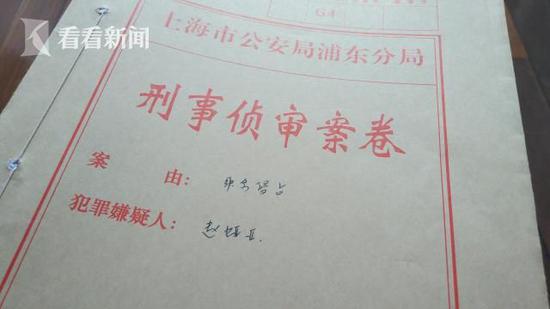 看看新闻
G4
上海市公安局浦东分局
刑事侦审案卷
案 由: 职务侵占
犯罪嫌疑人: 赵